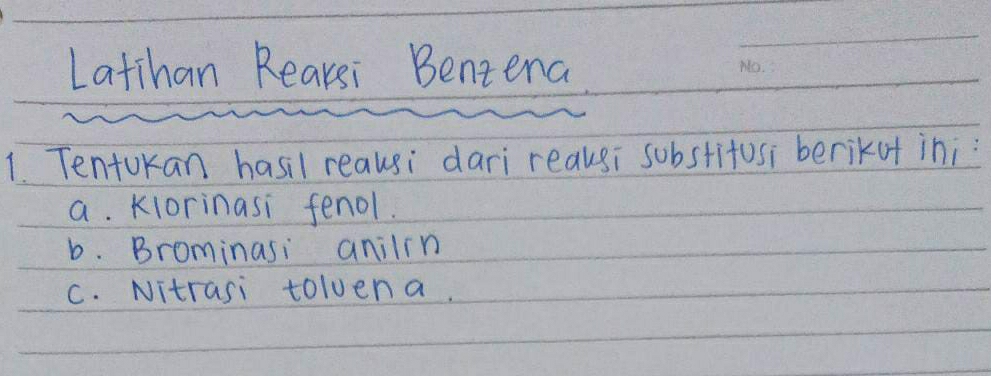 Latihan Reaksi Benzena
No. :
1. Tentukan hasil reaksi dari reaksi substitusi berikut ini :
a. Klorinasi fenol.
b. Brominasi anilin
c. Nitrasi toluena.